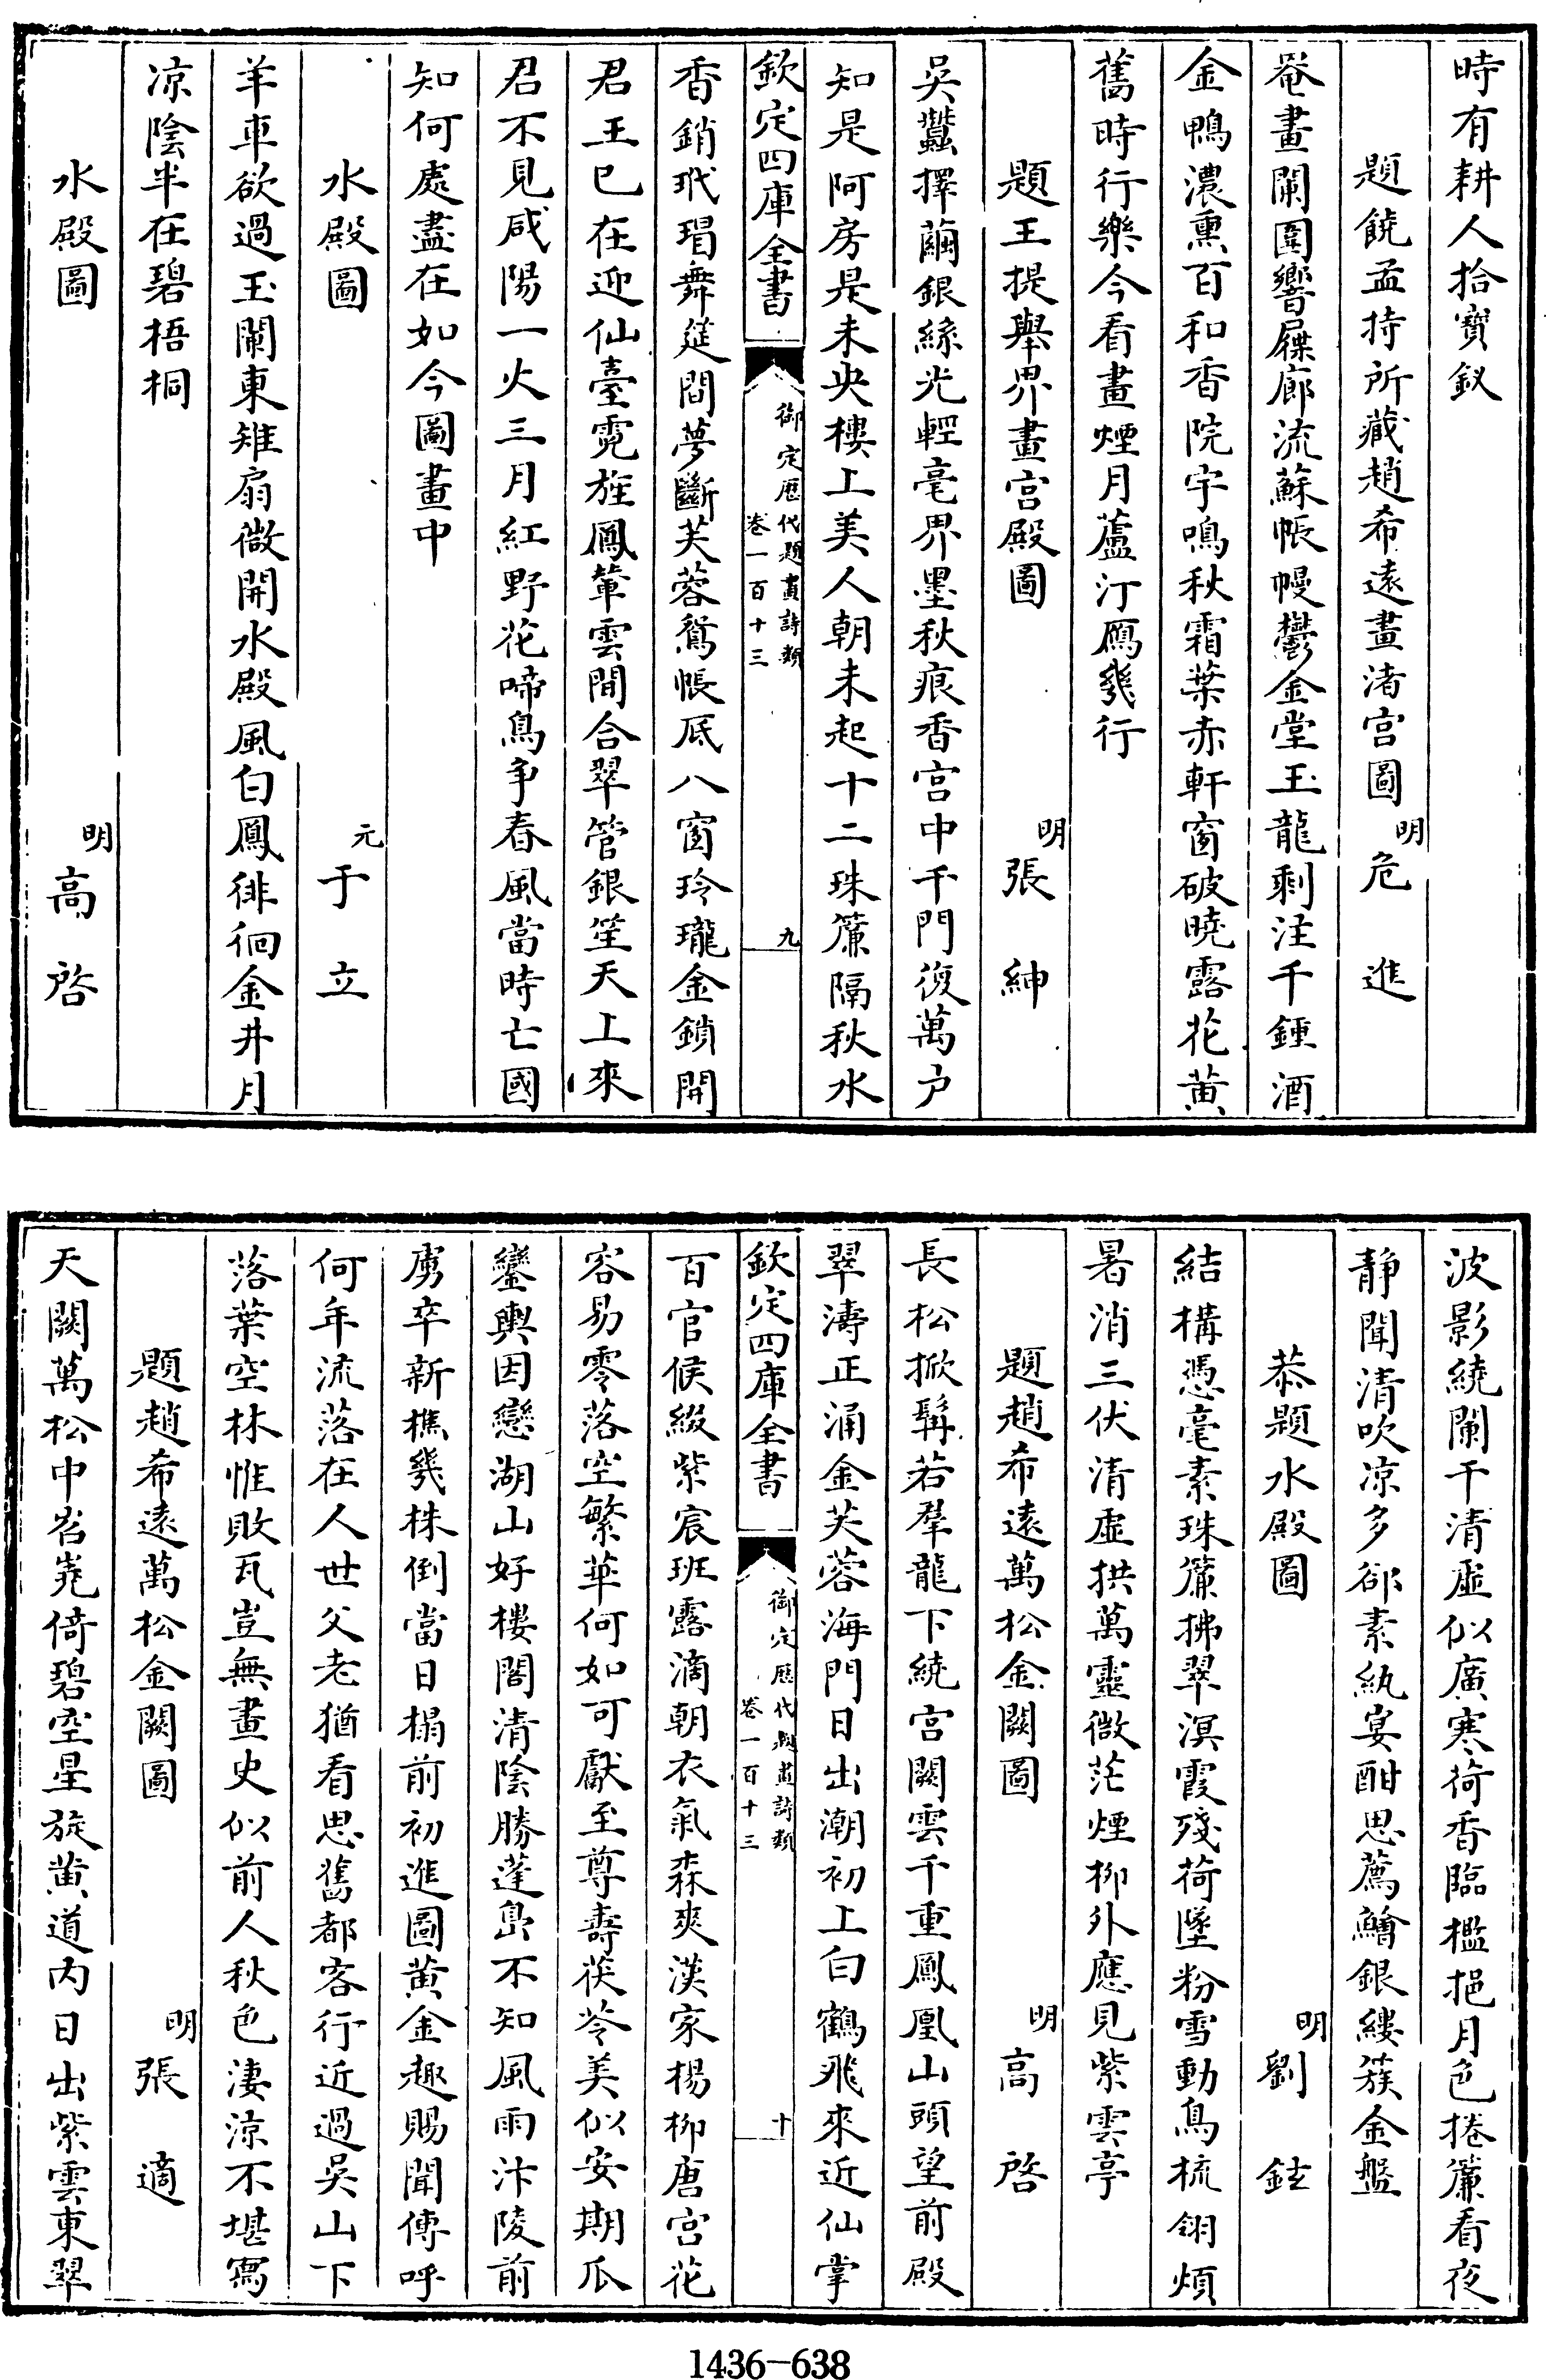 時有耕人拾寳釵
題饒孟持所藏趙希遠畫渚宫圖　明危進
罨畫闌圍響屧廊流蘇帳幔鬱金堂玉龍剩注千鍾酒
金鴨濃熏百和香院宇鳴秋霜葉赤軒窗破曉露花黄
舊時行樂今看畫煙月蘆汀鴈幾行
題王提舉界畫宫殿圖　明張紳
吳蠶擇繭銀絲光輕毫界墨秋痕香宫中千門復萬户
知是阿房是未央樓上美人朝未起十二珠簾隔秋水
欽定四庫全書　御定歴代題畫詩類　卷一百十三　九
香銷玳瑁舞筵間夢斷芙蓉鴛帳底八窗玲瓏金鎖開
君王已在迎仙臺霓旌鳳輦雲間合翠管銀笙天上來
君不見咸陽一火三月紅野花啼鳥争春風當時亡國
知何處盡在如今圖畫中
水殿圖　元于立
羊車欲過玉闌東雉扇微開水殿風白鳳徘徊金井月
凉陰半在碧梧桐
水殿圖　明高啓
波影繞闌干清虚似廣寒荷香臨檻挹月色捲簾看夜
静聞清吹凉多卻素紈宴酣思薦鱠銀縷簇金盤
恭題水殿圖　明劉鉉
結構憑毫素珠簾拂翠溟霞殘荷墜粉雪動鳥梳翎煩
暑消三伏清虚拱萬靈微茫煙柳外應見紫雲亭
題趙希遠萬松金闕圖　明高啓
長松掀髯若羣龍下繞宫闕雲千重鳳凰山頭望前殿
翠濤正涌金芙蓉海門日出潮初上白鶴飛來近仙掌
欽定四庫全書　御定歴代題畫詩類　卷一百十三　十
百官候綴紫宸班露滴朝衣氣森爽漢家楊柳唐宫花
容易零落空繁華何如可獻至尊壽茯苓美似安期瓜
鑾輿因戀湖山好樓閣清陰勝蓬島不知風雨汴陵前
虜卒新樵幾株倒當日榻前初進圖黄金趣賜聞傳呼
何年流落在人世父老猶看思舊都客行近過吳山下
落葉空林惟敗瓦豈無畫史似前人秋色淒涼不堪寫
題趙希遠萬松金闕圖　明張適
天闕萬松中岧嶤倚碧空星旋黄道内日出紫雲東翠
1436-638